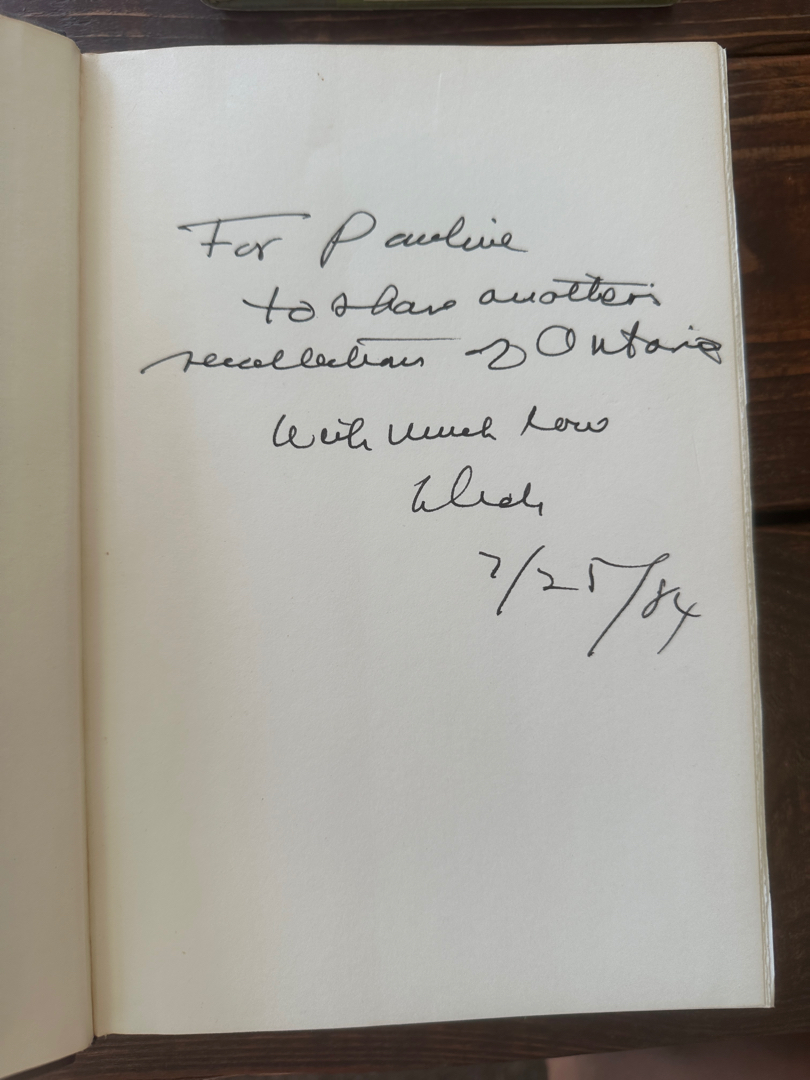 For Pauline
to share another's
recollections of Ontario
With much love
7/25/84